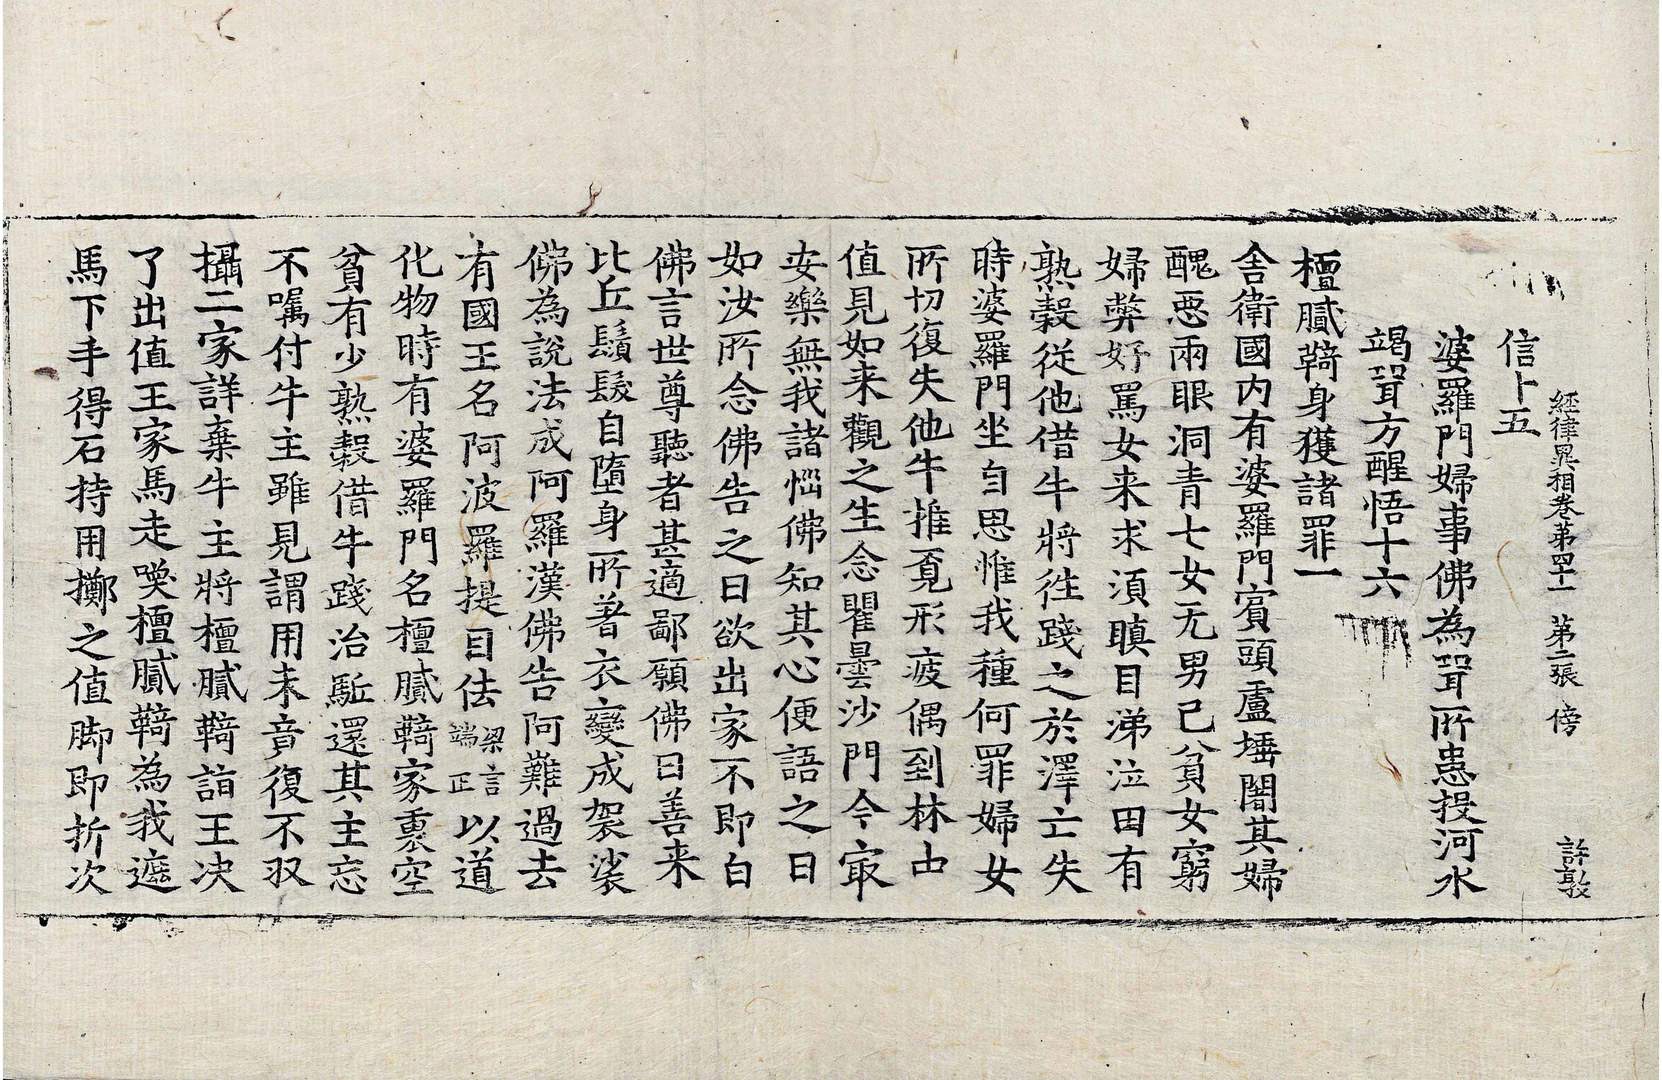 經律異相卷第四十一　第二張　傍　許敦
信卜五
婆羅門婦事佛為聟所患投河水
竭聟方醒悟十六
檀膩䩭身獲諸罪一
舍衛國内有婆羅門賔頭盧埵闍其婦
醜惡兩眼洞青七女无男己貧女窮
婦弊好罵女来求湏瞋目涕泣田有
熟糓從他借牛將徃踐之於澤亡失
時婆羅門坐自思惟我種何罪婦女
所切復失他牛推覔形疲偶到林中
值見如来觀之生念瞿曇沙門今㝡
安樂無我諸惱佛知其心便語之曰
如汝所念佛告之曰欲出家不即白
佛言世尊聽者甚適鄙願佛曰善来
比丘鬚髮自墮身所著衣變成袈裟
佛為說法成阿羅漢佛告阿難過去
有國王名阿波羅提目佉梁言端正以道
化物時有婆羅門名檀膩䩭家裏空
貧有少熟糓借牛踐治駈還其主忘
不囑付牛主雖見謂用未竟復不収
攝二家詳棄牛主將檀膩䩭詣王决
了出值王家馬走喚檀膩䩭為我遮
馬下手得石持用擲之值脚即折次